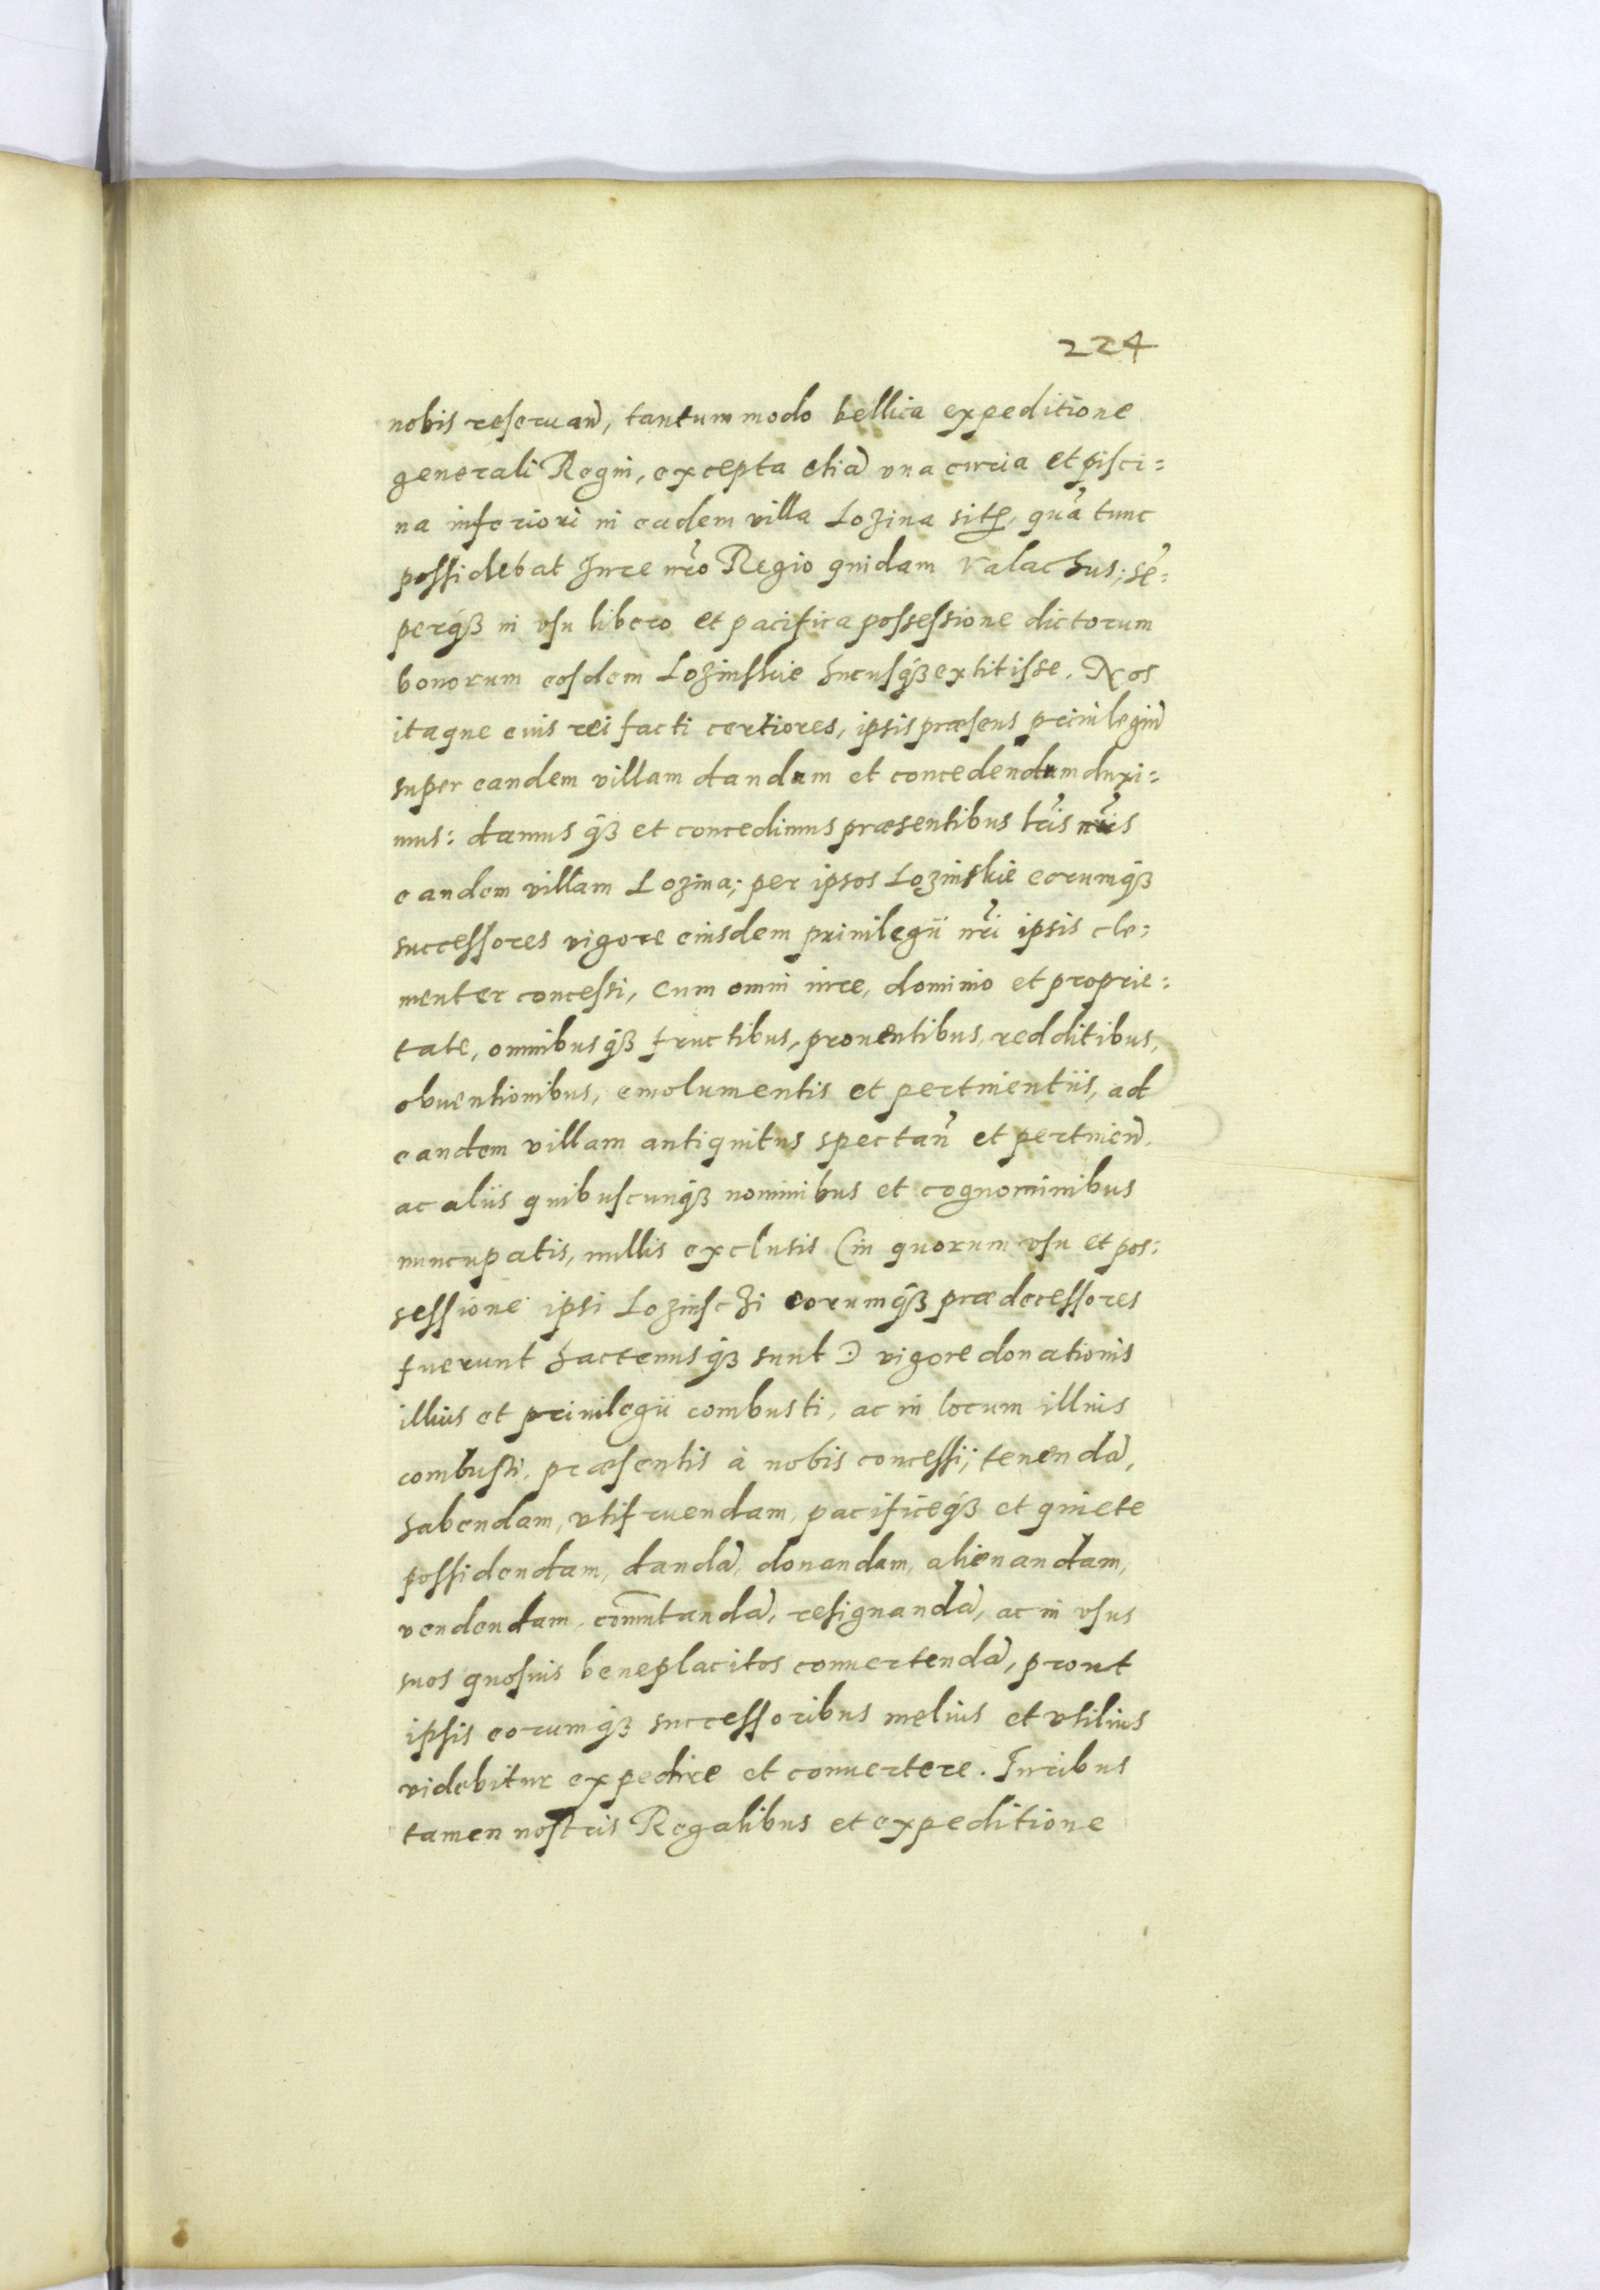 224
nobis reseruañ, tantummodo bellica expeditione
generali Regni, excepta etiã vna curia et pisci:
na inferiori in eadem villa Lozina sitꝭ, quã tunc
possidebat Iure nr̃o Regio quidam Valachus; sẽ:
perqꝫ in vsu libero et pacifica possessione dictorum
bonorum eosdem Lozinskie hucusqꝫ extitisse. Nos
itaque eius rei facti certiores, ipsis præsens priuilegiũ
super eandem villam dandum et concedendum duxi:
mus: damus qꝫ et concedimus præsentibus lr̃is nr̃is
eandem villam Lozina; per ipsos Lozinskie eorumqꝫ
successores vigore eiusdem priuilegii nr̃i ipsis cle:
menter concessi, cum omni iure, dominio et proprie:
tate, omnibusqꝫ fructibus, prouentibus, redditibus,
obuentionibus, emolumentis et pertinentiis, ad
eandem villam antiquitus spectañ et pertineñ,
ac aliis quibuscunqꝫ nominibus et cognominibus
nuncupatis, nullis exclusis (in quorum vsu et pos:
sessione ipsi Lozinschi eorumqꝫ prædecessores
fuerunt hactenusqꝫ sunt) vigore donationis
illius et priuilegii combusti, ac in locum illius
combusti, præsentis à nobis concessi; tenendã,
habendam, vtifruendam, pacificeqꝫ et quiete
possidendam, dandã, donandam, alienandam,
vendendam, com̃utandã, resignandã, ac in vsus
suos quosuis beneplacitos conuertendã, prout
ipsis eorumqꝫ successoribus melius et vtilius
videbitur expedire et conuertere. Iuribus
tamen nostris Regalibus et expeditione